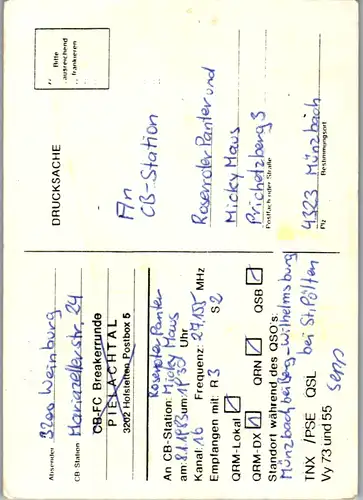 Absender 3200 Weinburg
CB-Station Mariazellerstr. 24
CB-FC Breakerrunde
PIELACHTAL
3202 Hofstetten Postbox 5
Rosenroter Panter
An CB-Station: Micky Maus
Uhr
Kanal: 16 Frequenz: 27,155 MHz
Empfangen mit: R 3 S 2
QRM-Lokal
QRM-DX QRN QSB
Standort während des QSO's:
Münzbach bei Berg-Wilhelmsburg
TNX /PSE QSL bei St. Pölten
Vy 73 und 55 Sepp
DRUCKSACHE
Bitte
ausreichend
frankieren
An
CB-Station
Rosenroter Panter und
Micky Maus
Prichetzberg 3
Postfach oder Straße
4323 Münzbach
Plz Bestimmungsort